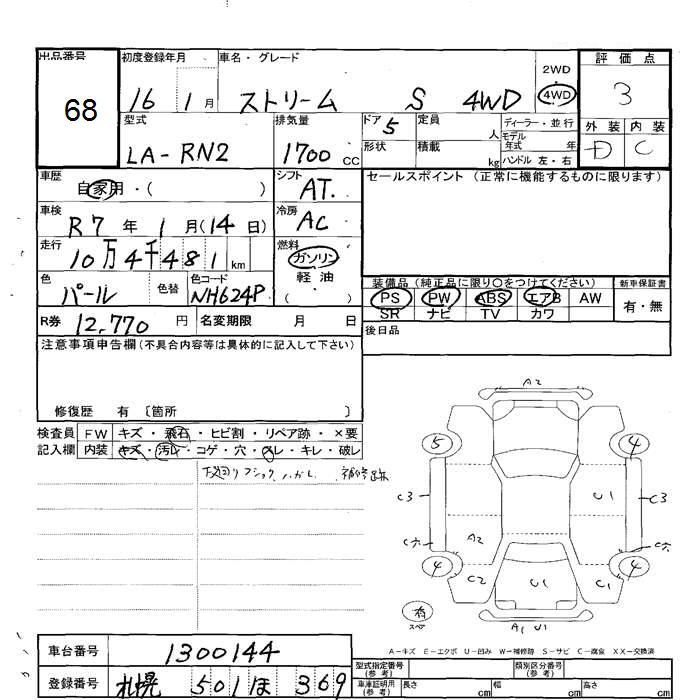 出品番号 初度登録年月 車名・グレード 2WD 評価点
68 16 1月 ストリーム S 4WD 4WD 3
型式 排気量 ドア 5 定員 人 ディーラー・並行 外装 内装
LA-RN2 1700 CC 形状 積載 kg モデル年式 年 D C
ハンドル 左・右
車歴 シフト セールスポイント (正常に機能するものに限ります)
自家用・( ) AT.
車検 冷房
R7年 1月(14日) AC
走行 燃料
10万4千481km ガソリン
軽油
色 色替 色コード 装備品 (純正品に限り○をつけてください) 新車保証書
パール NH624P PS PW ABS エアB AW 有・無
R券 12,770円 名変期限 月 日 SR ナビ TV カワ
注意事項申告欄(不具合内容等は具体的に記入して下さい) 後日品
修復歴 有 〔箇所 〕
検査員 FW キズ・飛石・ヒビ割・リペア跡・×要
記入欄 内装 キズ・汚レ・コゲ・穴・スレ・キレ・破レ
補修跡
A2
5 4
C3 U1 C3
C穴 A2 C穴
4 C2 U1 C1 4
有
スペア A1 U1
A-キズ E-エクボ U-凹み W-補修跡 S-サビ C-腐食 XX-交換済
車台番号 1300144 型式指定番号(参考) 類別区分番号(参考)
登録番号 札幌 501 ほ 369 車庫証明用(参考) 長さ cm 幅 cm 高さ cm